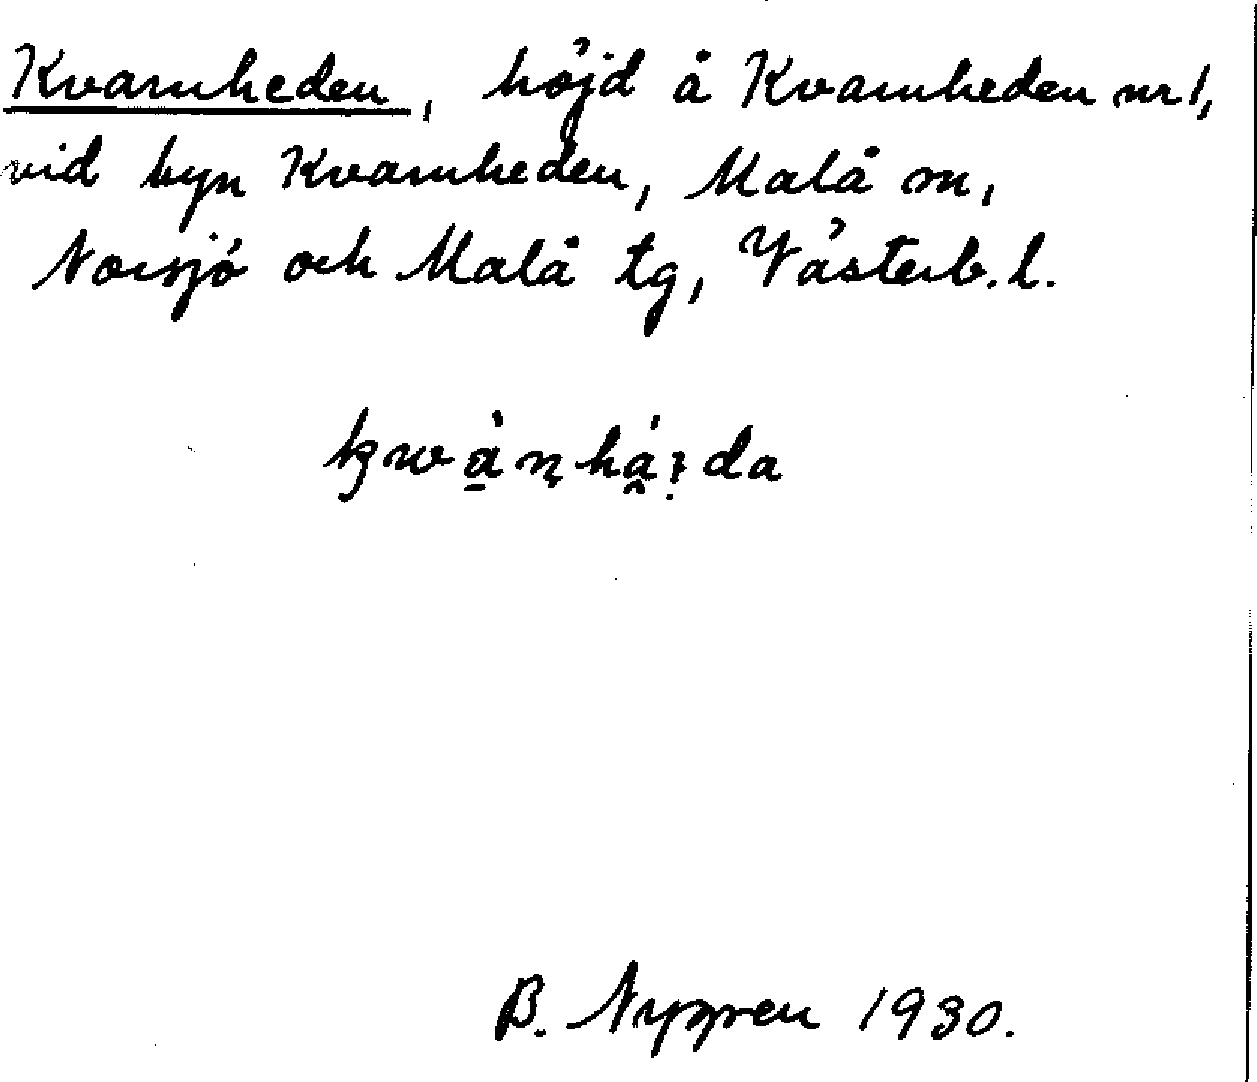 Kvarnheden, höjd å Kvarnheden nr 1,
vid byn Kvarnheden, Malå sn,
Norsjö och Malå tg, Västerb. l.
B. Nygren 1930.